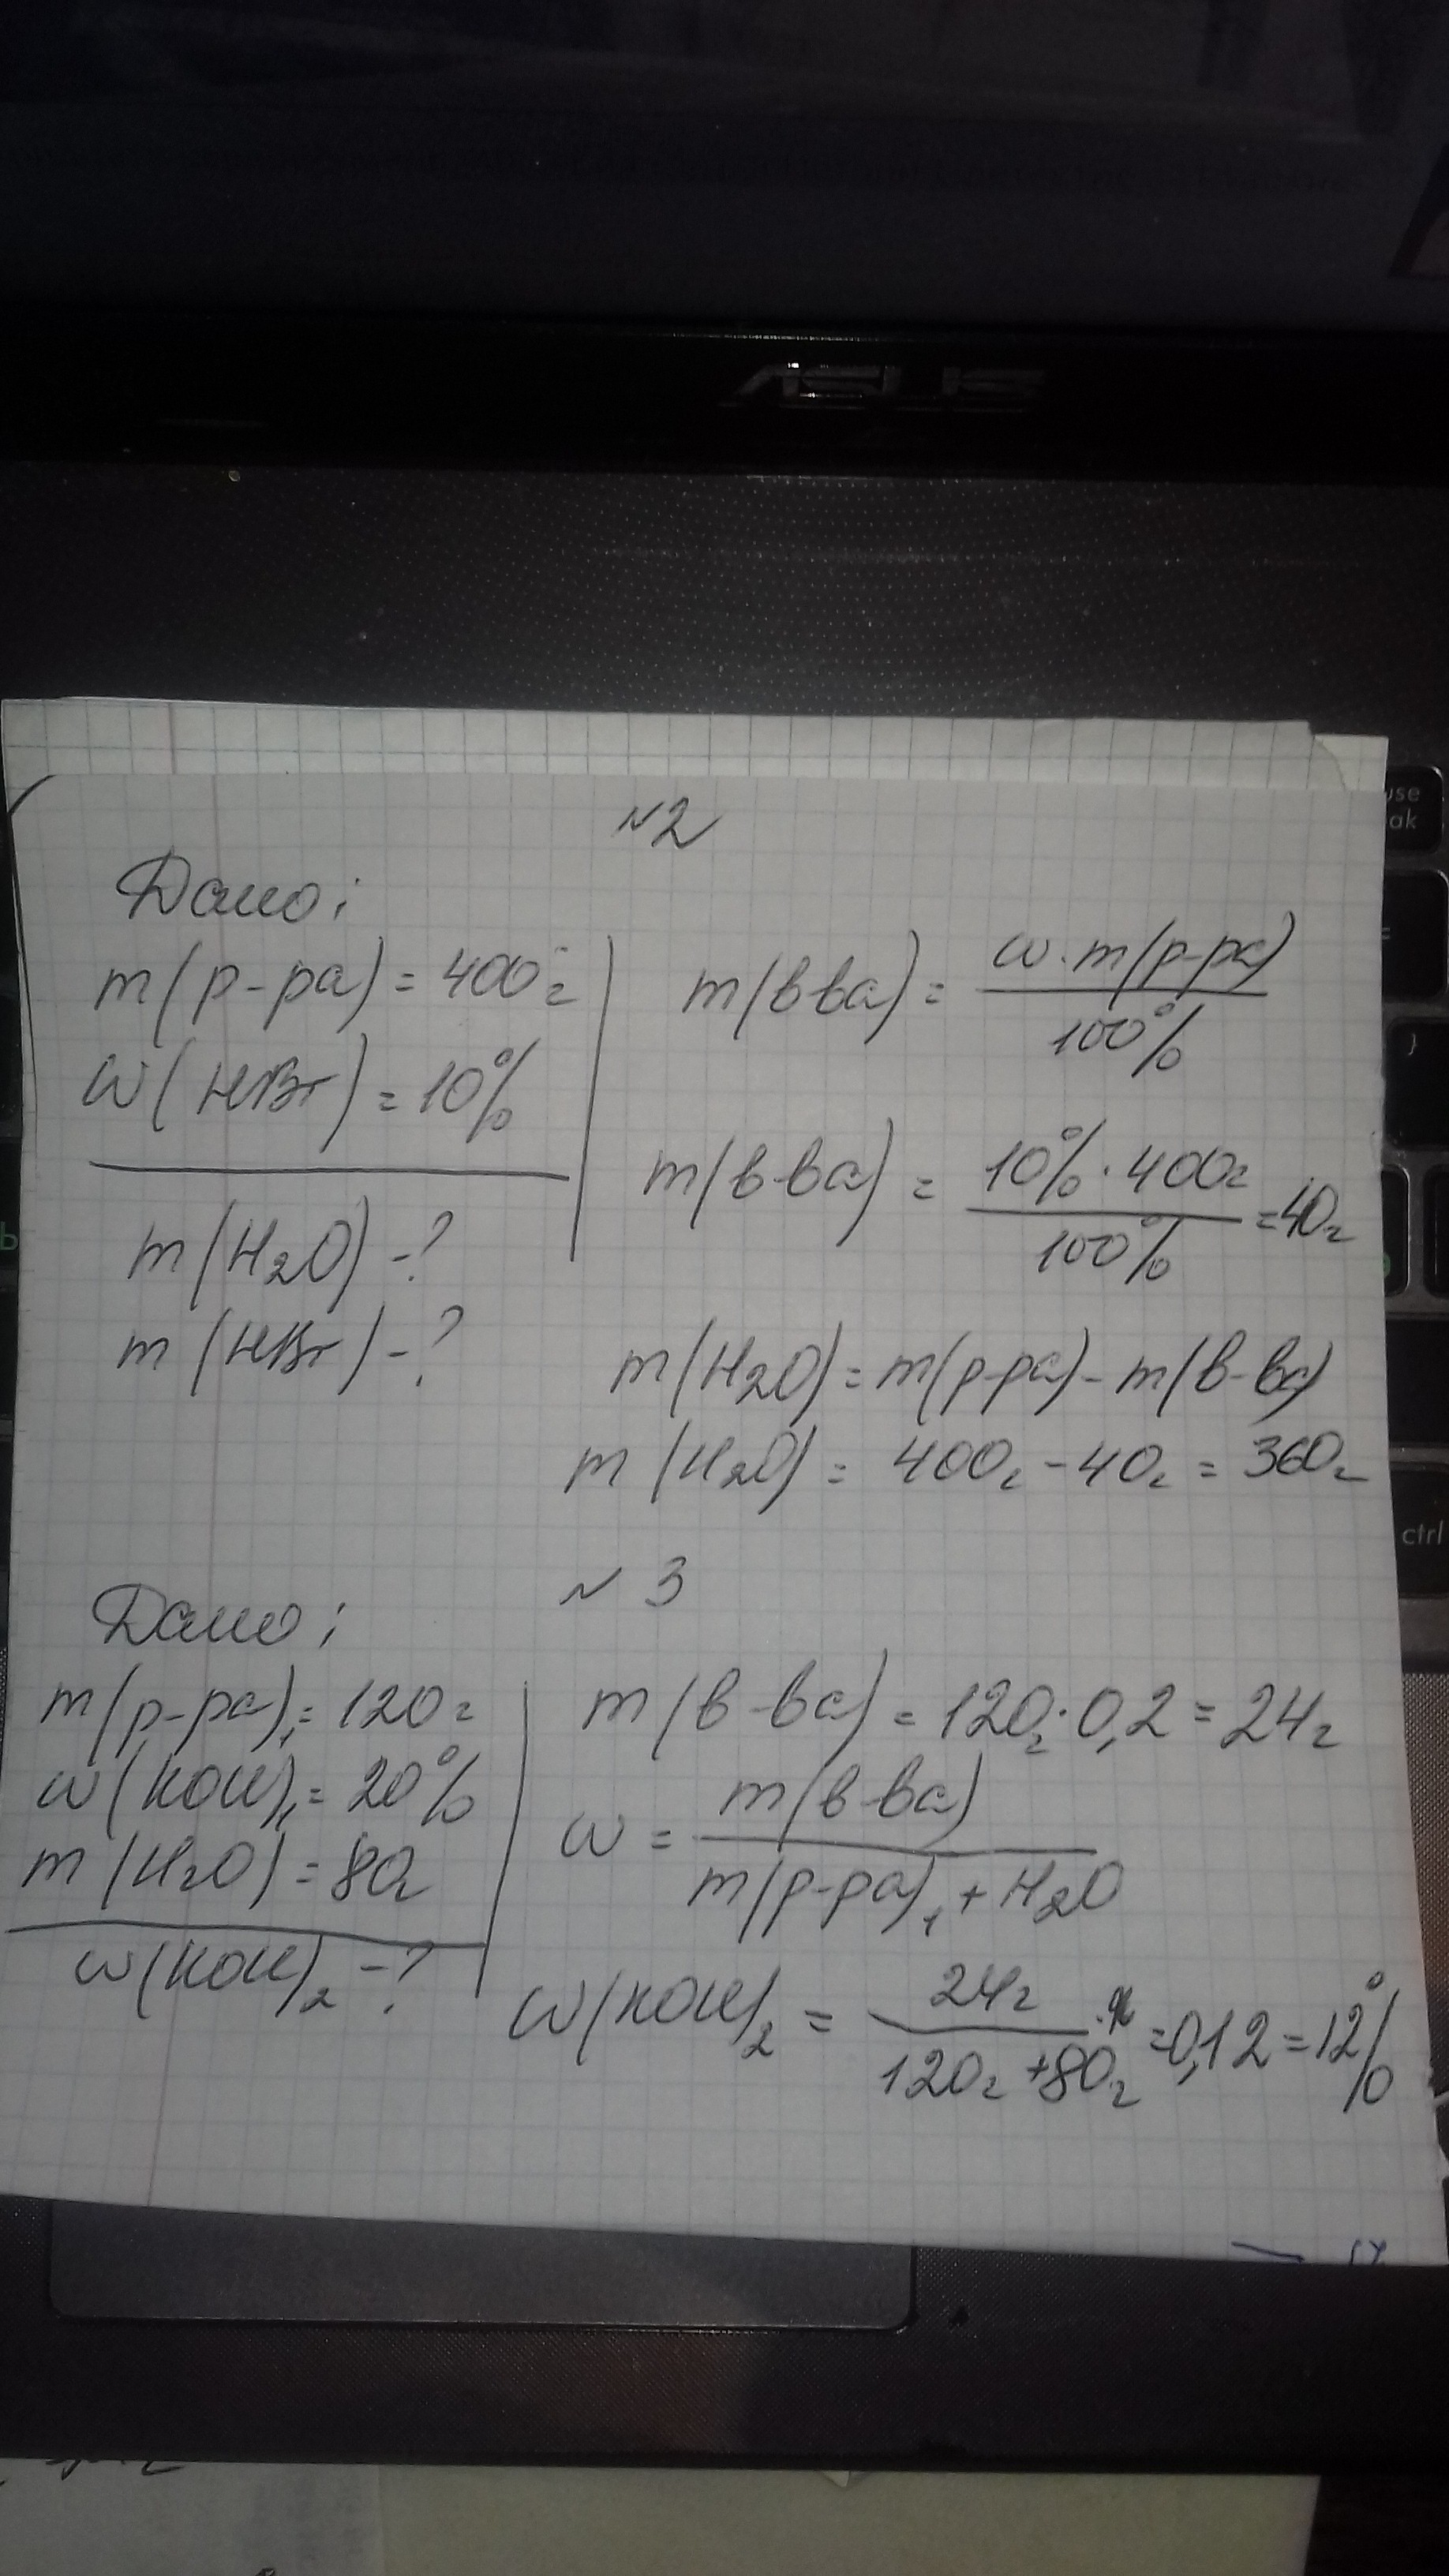 ASUS
use
ak
ctrl
№2
Дано:
m(р-ра) = 400г
w(HBr) = 10%
m(H2O) - ?
m(HBr) - ?
m(в-ва) = w · m(р-ра) / 100%
m(в-ва) = 10% · 400г / 100% = 40г
m(H2O) = m(р-ра) - m(в-ва)
m(H2O) = 400г - 40г = 360г
№3
Дано:
m(р-ра)1 = 120г
w(KOH)1 = 20%
m(H2O) = 80г
w(KOH)2 - ?
m(в-ва) = 120г · 0,2 = 24г
w = m(в-ва) / m(р-ра)1 + H2O
w(KOH)2 = 24г / 120г + 80г = 0,12 = 12%